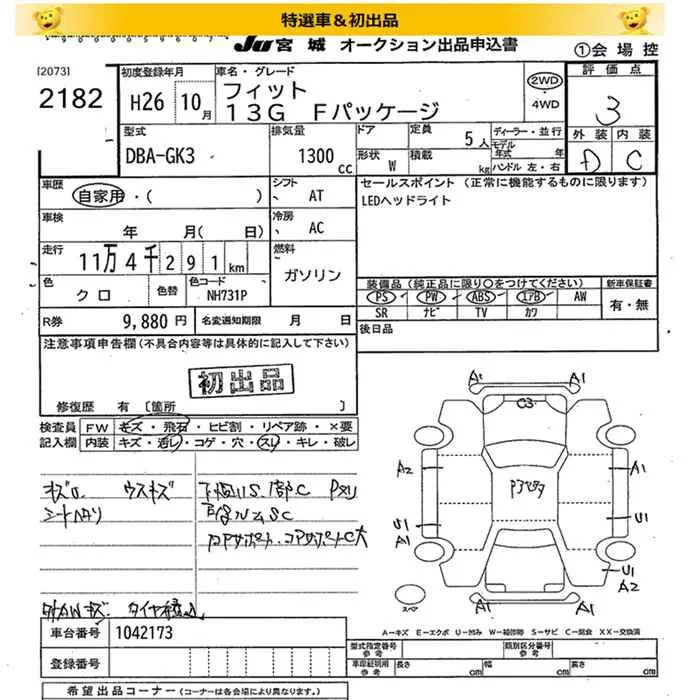 特選車&初出品
JU宮城 オークション出品申込書
①会場控
[2073]
2182
初度登録年月
H26 10月
車名・グレード
フィット
13G Fパッケージ
2WD
・
4WD
評価点
3
外装 内装
D C
型式
DBA-GK3
排気量
1300 cc
ドア
形状 W
定員 5人
積載 kg
ディーラー・並行
モデル年式 年
ハンドル 左・右
車歴
自家用・( )
シフト
、 AT
車検
年 月( 日)
冷房
、 AC
走行
11万4千291km
燃料
ガソリン
色
クロ
色替
色コード
NH731P
R券 9,880円
名変通知期限 月 日
セールスポイント (正常に機能するものに限ります)
LEDヘッドライト
装備品(純正品に限り○をつけてください)
新車保証書
PS PW ABS エアB AW
SR ナビ TV カワ
有・無
後日品
注意事項申告欄(不具合内容等は具体的に記入して下さい)
初出品
修復歴 有 [箇所 ]
検査員
記入欄
FW キズ・飛石・ヒビ割・リペア跡・×要
内装 キズ・汚レ・コゲ・穴・スレ・キレ・破レ
ウスキズ
A1 A1
C3
A2 A1
U1 U1
A1
U1
A2
A1 A1
スペア
A-キズ E-エクボ U-凹み W-補修跡 S-サビ C-腐食 XX-交換済
車台番号 1042173
登録番号
型式指定番号
参考
類別区分番号
参考
車庫証明用
参考
長さ cm
幅 cm
高さ cm
希望出品コーナー(コーナーは各会場により異なります。)